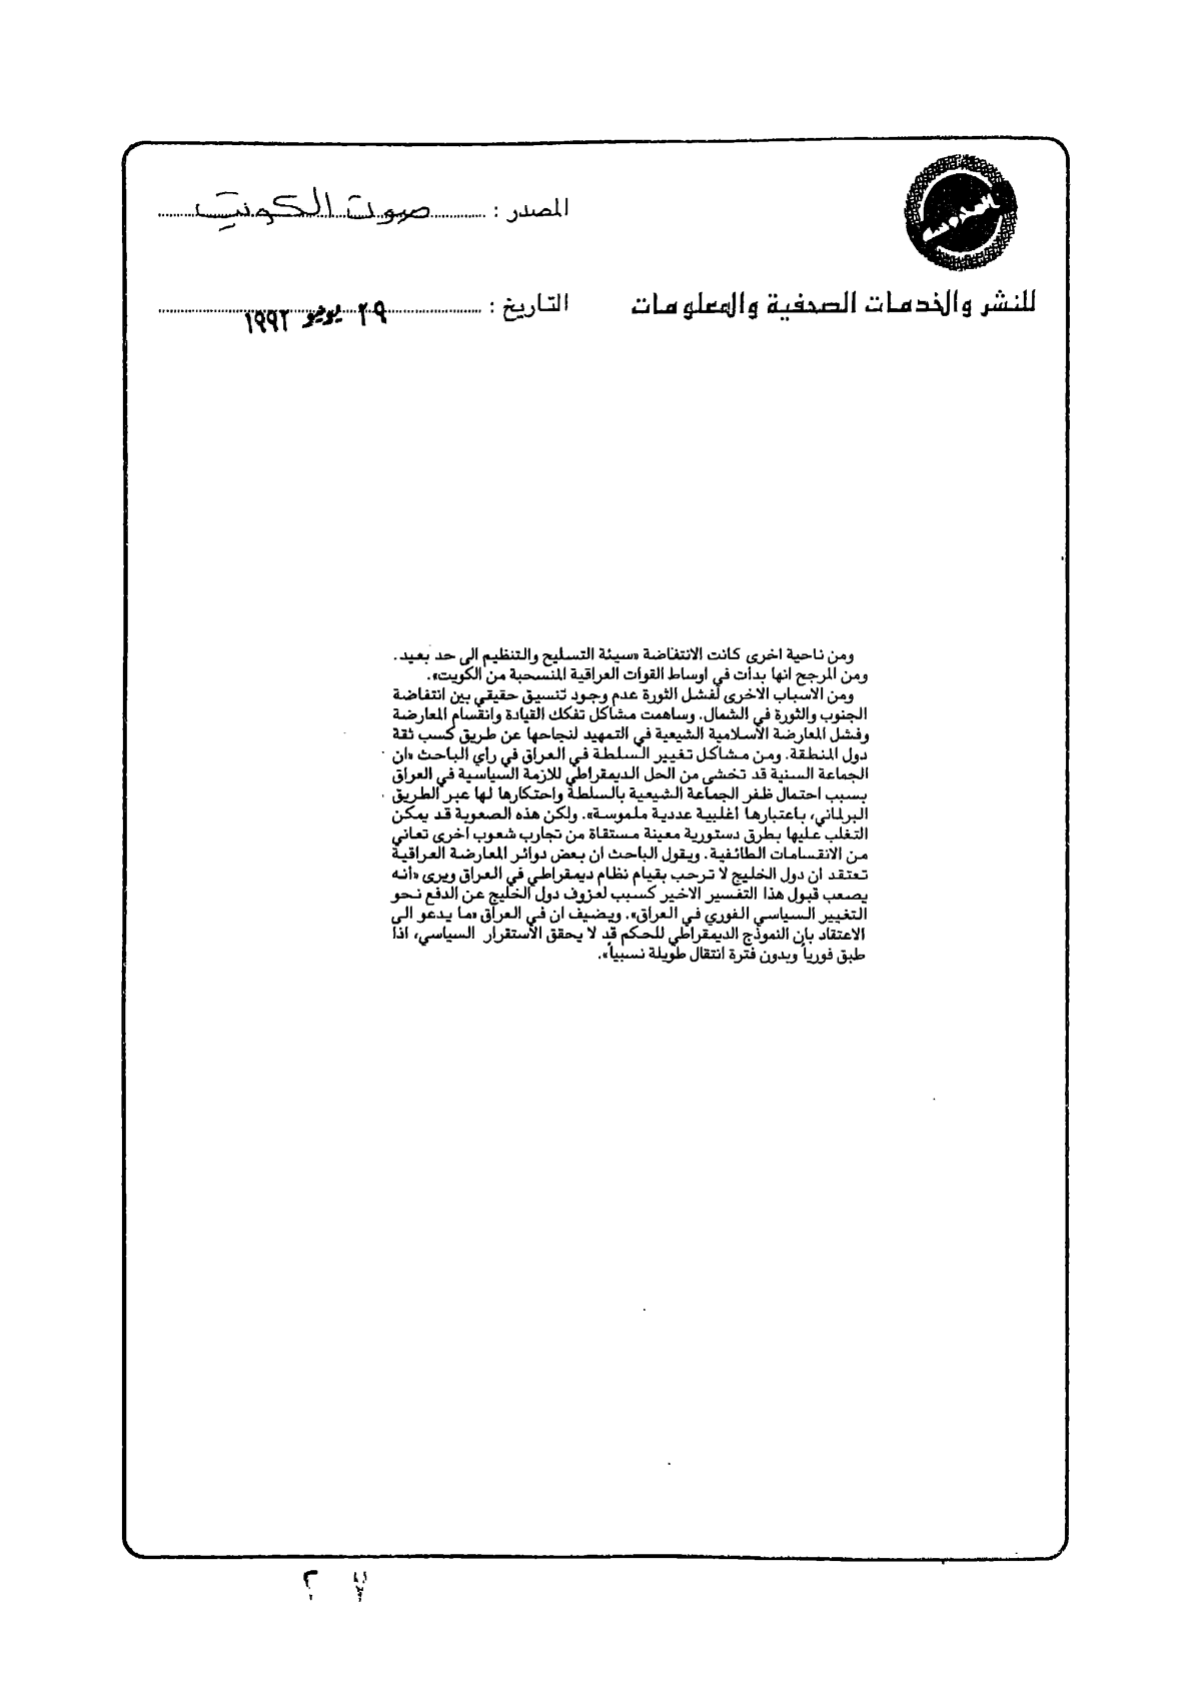 المصدر : صوت الكويت
للنشر والخدمات الصحفية والمعلومات
التاريخ : ٢٩ يونيو ١٩٩٢
ومن ناحية اخرى كانت الانتفاضة «سيئة التسليح والتنظيم الى حد بعيد.
ومن المرجح انها بدأت في اوساط القوات العراقية المنسحبة من الكويت».
ومن الاسباب الاخرى لفشل الثورة عدم وجود تنسيق حقيقي بين انتفاضة
الجنوب والثورة في الشمال. وساهمت مشاكل تفكك القيادة وانقسام المعارضة
وفشل المعارضة الاسلامية الشيعية في التمهيد لنجاحها عن طريق كسب ثقة
دول المنطقة. ومن مشاكل تغيير السلطة في العراق في رأي الباحث «ان
الجماعة السنية قد تخشى من الحل الديمقراطي للازمة السياسية في العراق
بسبب احتمال ظفر الجماعة الشيعية بالسلطة واحتكارها لها عبر الطريق
البرلماني، باعتبارها أغلبية عددية ملموسة». ولكن هذه الصعوبة قد يمكن
التغلب عليها بطرق دستورية معينة مستقاة من تجارب شعوب اخرى تعاني
من الانقسامات الطائفية. ويقول الباحث ان بعض دوائر المعارضة العراقية
تعتقد ان دول الخليج لا ترحب بقيام نظام ديمقراطي في العراق ويرى «انه
يصعب قبول هذا التفسير الاخير كسبب لعزوف دول الخليج عن الدفع نحو
التغيير السياسي الفوري في العراق». ويضيف ان في العراق «ما يدعو الى
الاعتقاد بان النموذج الديمقراطي للحكم قد لا يحقق الاستقرار السياسي، اذا
طبق فورياً وبدون فترة انتقال طويلة نسبياً».